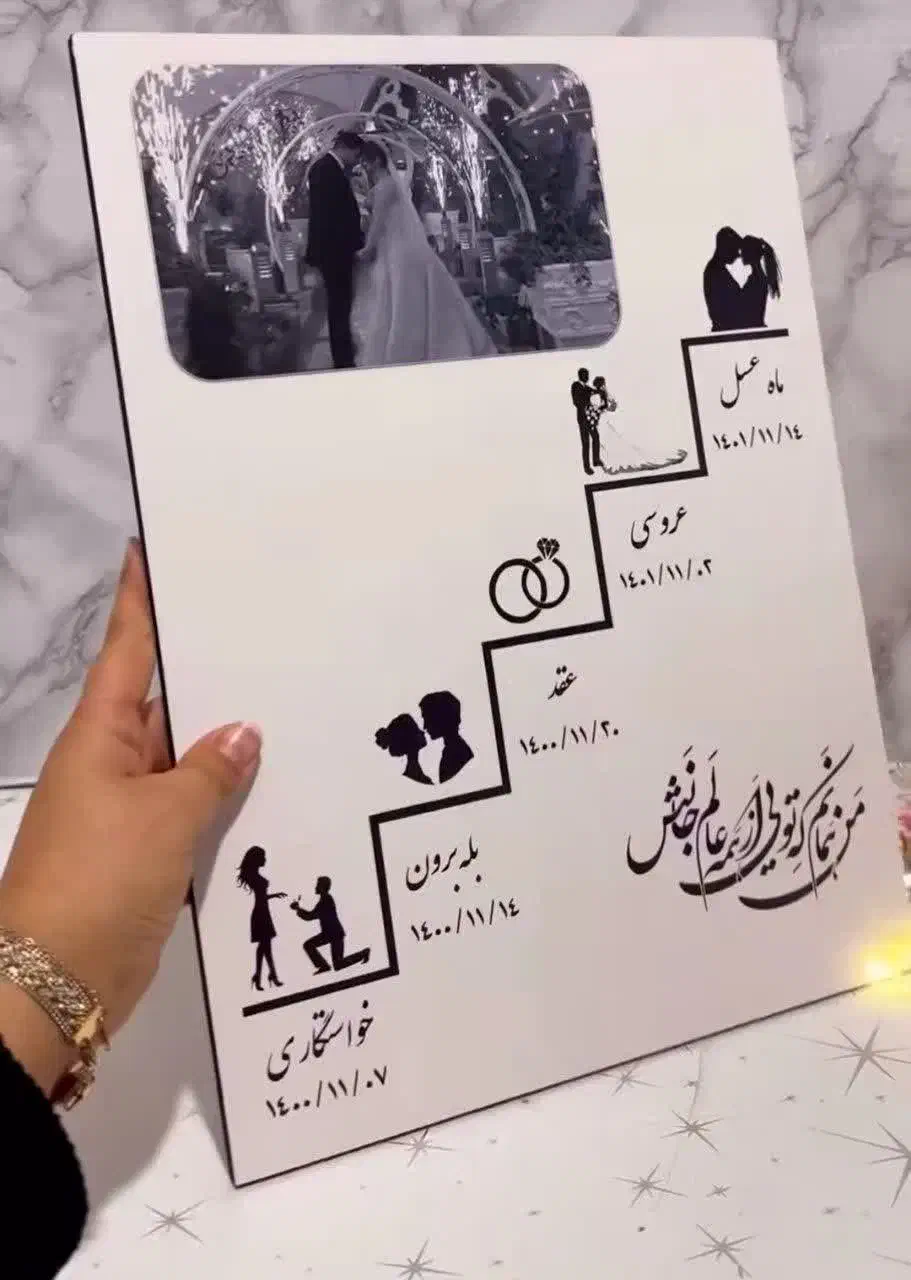 ماه عسل
۱٤۰۱/۱۱/۱٤
عروسی
۱٤۰۱/۱۱/۰۲
عقد
۱٤۰۰/۱۱/۲۰
بله برون
۱٤۰۰/۱۱/۱٤
خواستگاری
۱٤۰۰/۱۱/۰۷
من نمانم که تویی از همه عالم جانش